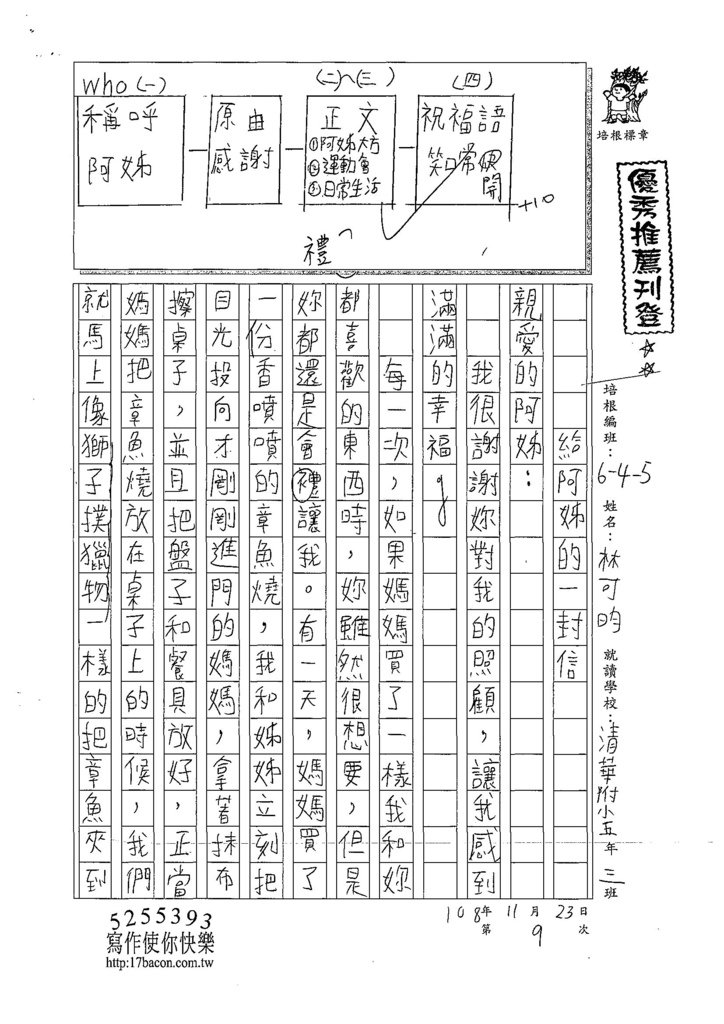 who (一)
稱呼
阿姊
原由
感謝
(二)(三)
正文
①阿姊大方
②運動會
③日常生活
(四)
祝福語
笑口常開
+10
禮
培根標章
優秀推薦刊登
培根編班：6-4-5 姓名：林可昀 就讀學校：清華附小五年三班
給阿姊的一封信
親愛的阿姊：
我很謝謝妳對我的照顧，讓我感到
滿滿的幸福。
每一次，如果媽媽買了一樣我和妳
都喜歡的東西時，妳雖然很想要，但是
妳都還是會禮讓我。有一天，媽媽買了
一份香噴噴的章魚燒，我和姊姊立刻把
目光投向才剛剛進門的媽媽，拿著抹布
擦桌子，並且把盤子和餐具放好，正當
媽媽把章魚燒放在桌子上的時候，我們
就馬上像獅子撲獵物一樣的把章魚夾到
108年11月23日
第9次
5255393
寫作使你快樂
http:17bacon.com.tw